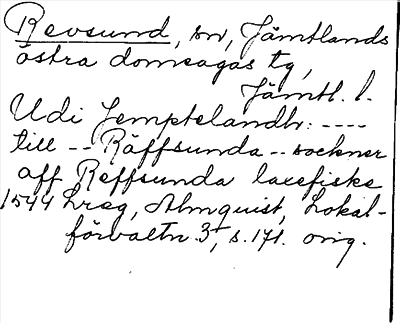 Revsund, sn, Jämtlands
östra domsagas tg,
Jämtl. l.
Udi Jemptelandh: ----
till -- Räffsunda -- sockner
aff Reffsunda laxefiske
1544 Lreg, Almquist, Lokal-
förvaltn. 3, s. 171. orig.